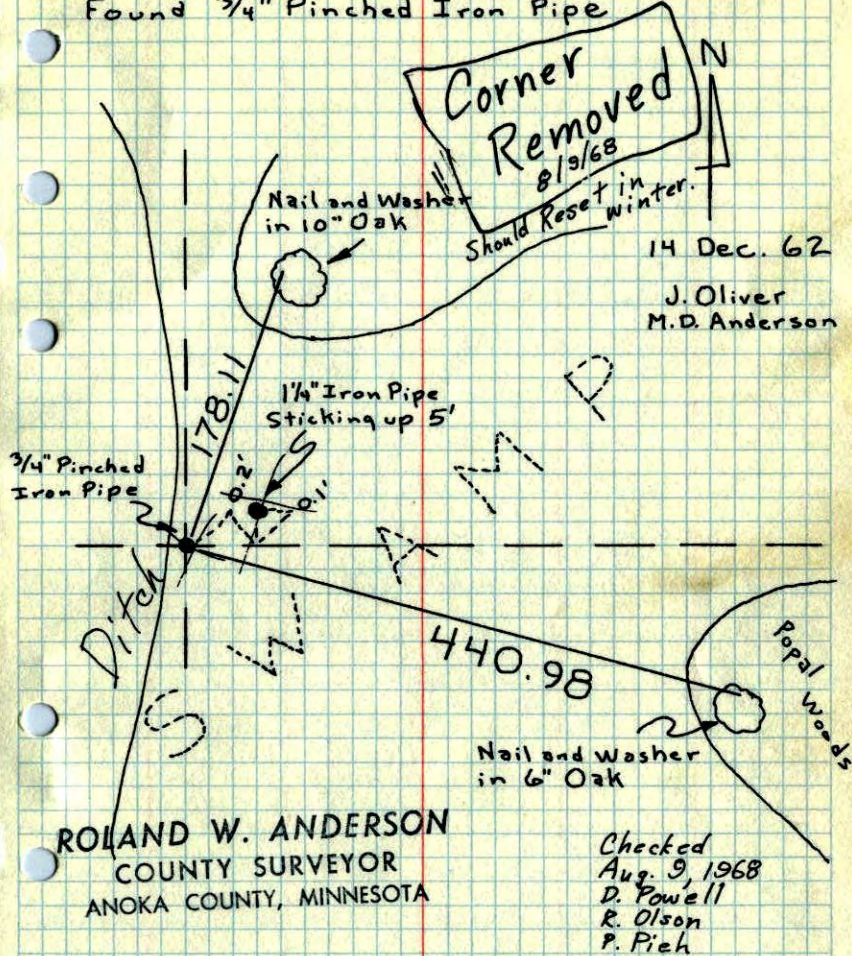 Found 3/4" Pinched Iron Pipe
Corner
Removed
8/9/68
Should Reset in
winter.
N
14 Dec. 62
J. Oliver
M.D. Anderson
Nail and Washer
in 10" Oak
178.11
1¼" Iron Pipe
Sticking up 5'
3/4" Pinched
Iron Pipe
0.2'
0.1'
Ditch
SWAMP
440.98
Popal Woods
Nail and Washer
in 6" Oak
ROLAND W. ANDERSON
COUNTY SURVEYOR
ANOKA COUNTY, MINNESOTA
Checked
Aug. 9, 1968
D. Powell
R. Olson
P. Pieh